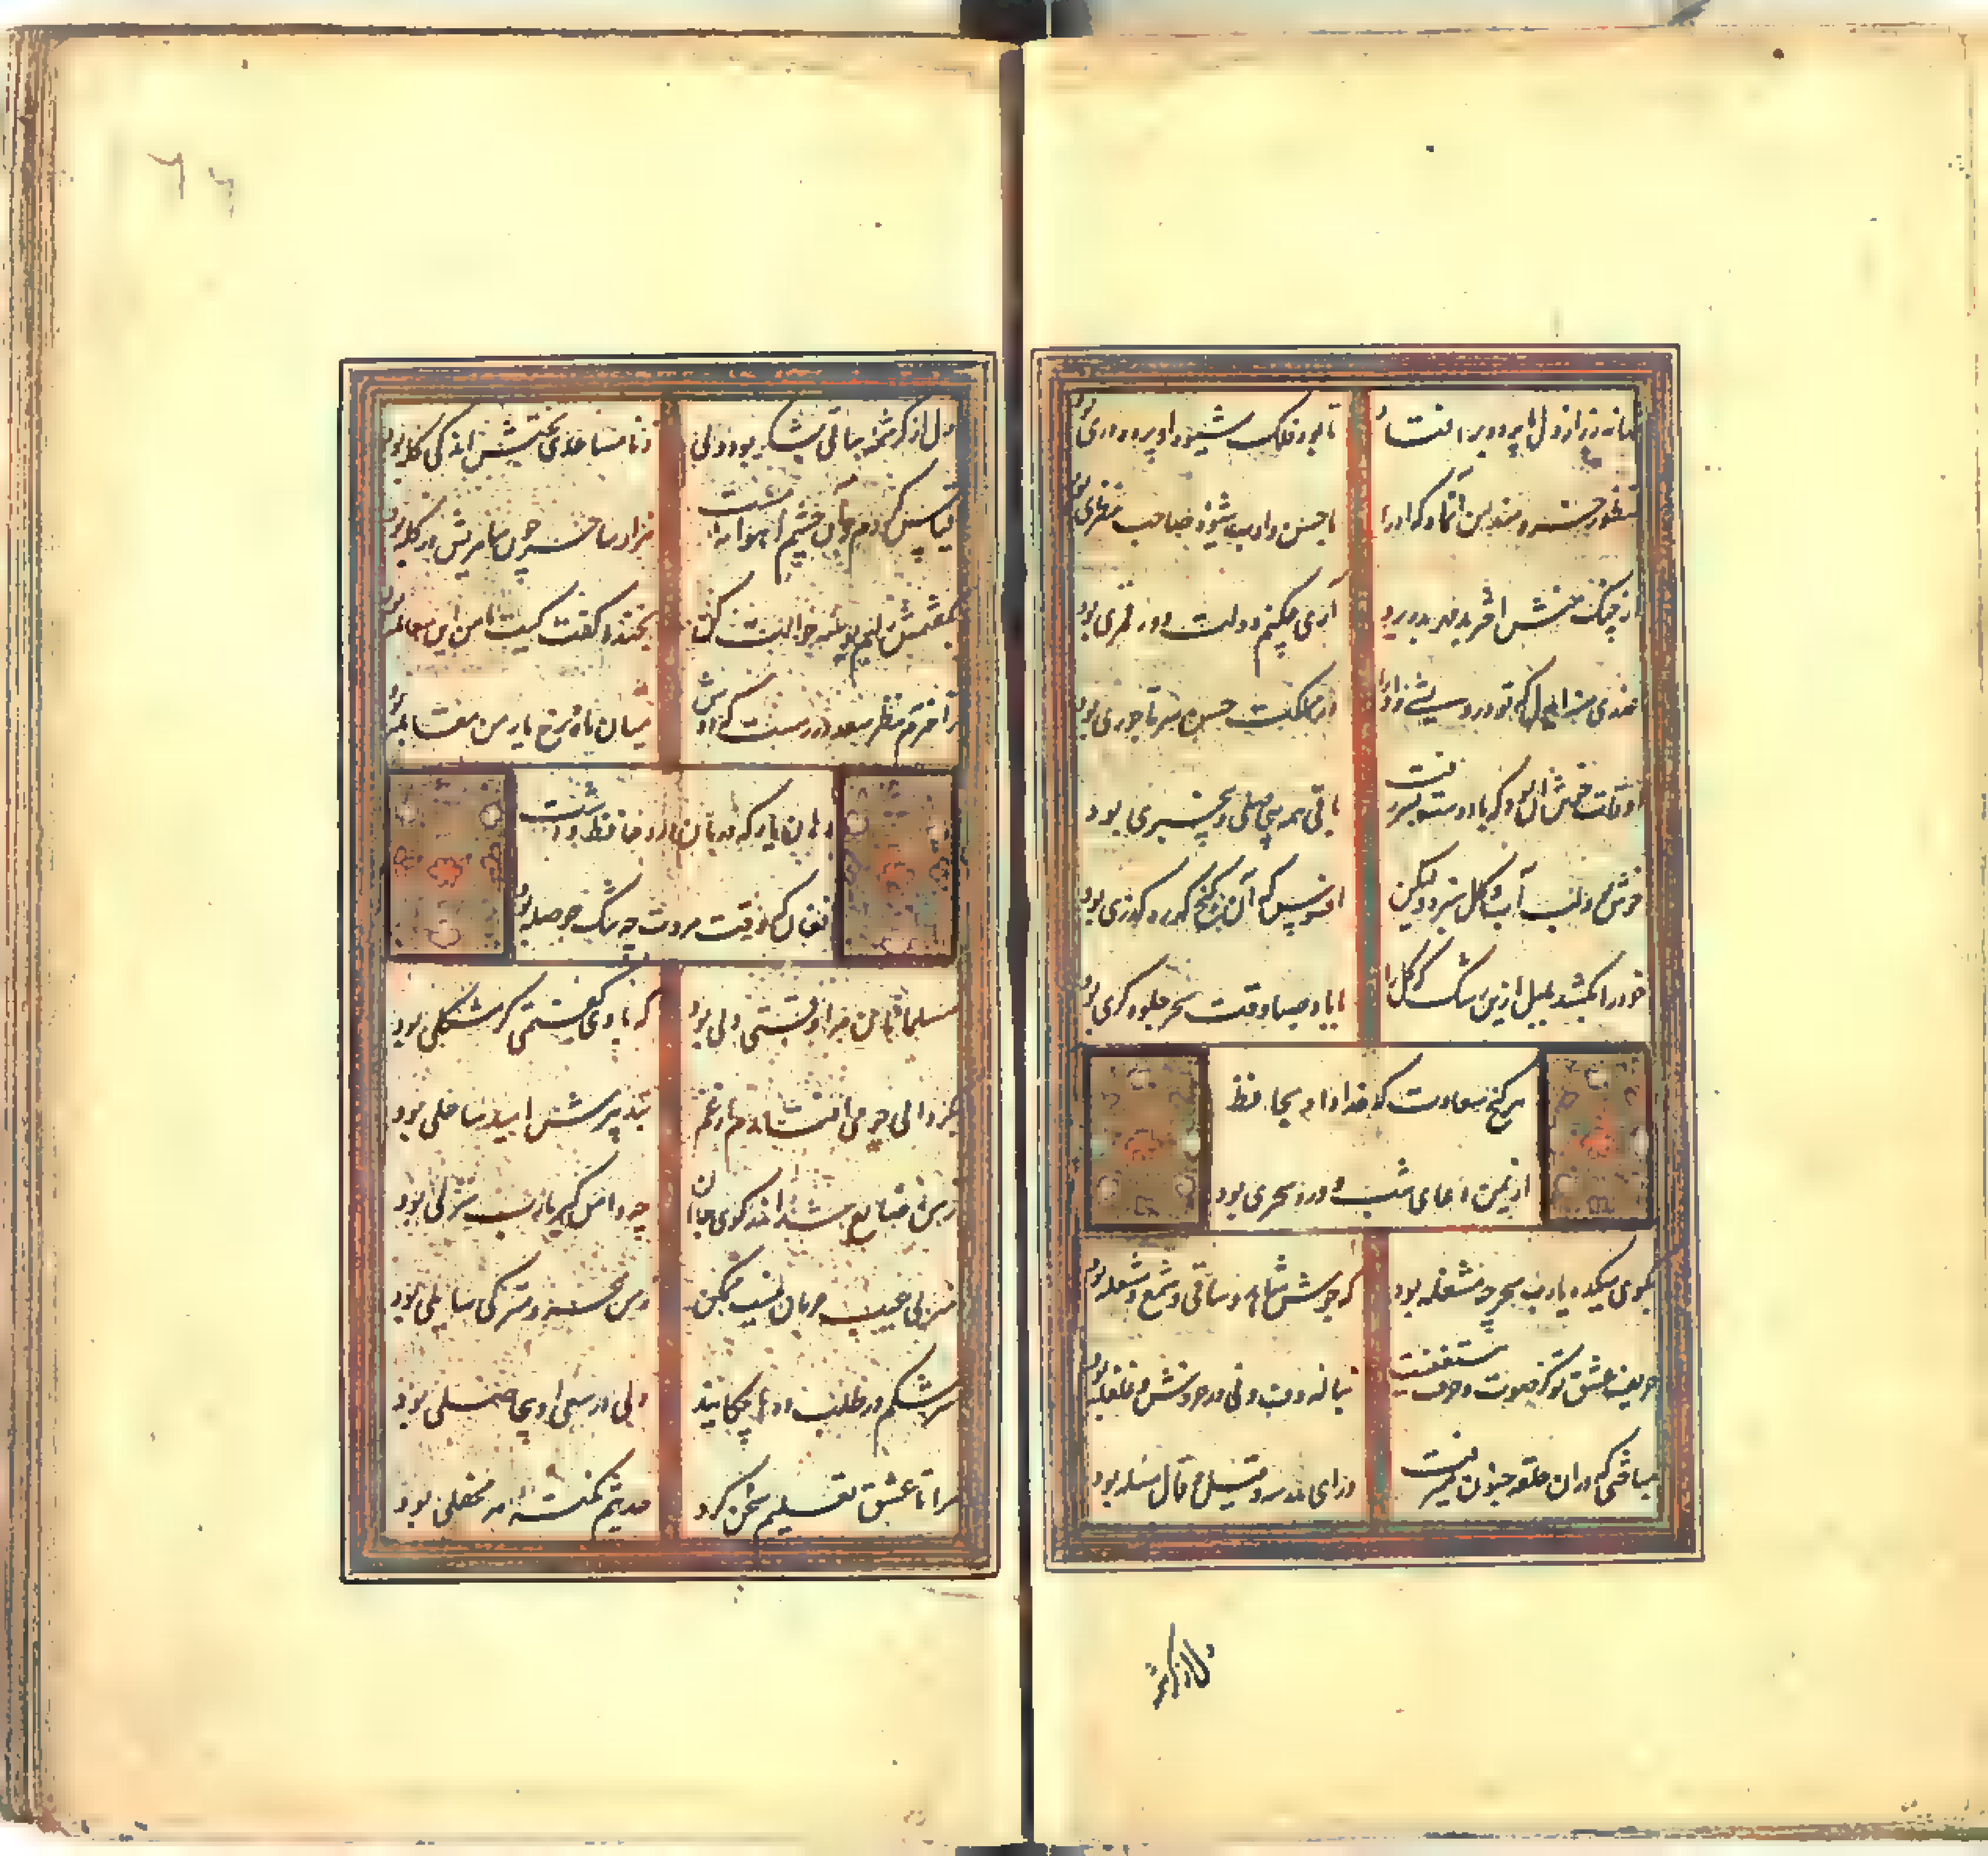 تنها نه ز راز دل ما پرده برافتاد تا بود فلک شیوه او پرده دری بود
منظور خردمند من آن ماه که او را با حسن و ادب شیوه صاحب نظری بود
از چنگ منش اختر بدمهر بدر برد آری چکنم دولت دور قمری بود
عذری بنه ای دل که تو درویشی و او را در مملکت حسن سر تاجوری بود
اوقات خوش آن بود که با دوست بسر رفت باقی همه بی حاصلی و بیخبری بود
خوش بود لب آب و گل سبزه و لیکن افسوس که آن گنج گهر رهگذری بود
خود را بکشد بلبل ازین رشک که گل را با باد صبا وقت سحر جلوه گری بود
هر گنج سعادت که خدا داد بحافظ
از یمن دعای شب و ورد سحری بود
بکوی میکده یارب سحر چه مشغله بود که جوش شاهد و ساقی و شمع و مشعله بود
حدیث عشق تو کز صوت و حرف مستغنیست بناله دف و نی در خروش و غلغله بود
مباحثی که در آن حلقه جنون میرفت ورای مدرسه و قیل و قال مسئله بود
دل از کرشمه
دل از کرشمه ساقی بشکر بود ولی ز نامساعدی بختش اندکی گله بود
قیاس کردم و آن چشم آهوانه مست هزار ساحر چون سامریش در گله بود
بگفتمش بلبم بوسه حوالت کن بخنده گفت کیت با من این معامله بود
ز اخترم نظر سعد در رهست که دوش میان ماه و رخ یار من مقابله بود
دهان یار که درمان درد حافظ داشت
فغان که وقت مروت چه تنگ حوصله بود
مسلمانان مرا وقتی دلی بود که با وی گفتمی گر مشکلی بود
بگردابی چو می افتادم از غم بتدبیرش امید ساحلی بود
ز من ضایع شد اندر کوی جانان چه دامن گیر یارب منزلی بود
هنر بی عیب حرمان نیست لیکن ز من محروم تر کی سایلی بود
سرشکم در طلب درها چکانید ولی از وصل او بی حاصلی بود
مرا تا عشق تعلیم سخن کرد حدیثم نکته هر محفلی بود